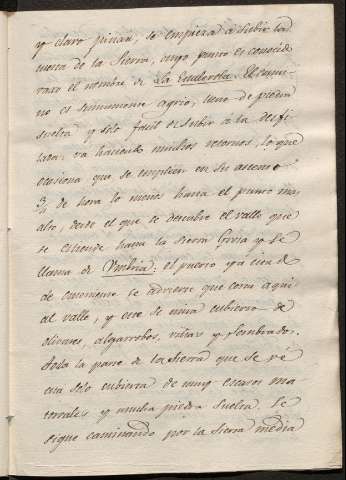 y claro pinar, se empieza a subir la
cuesta de la Sierra, cuyo punto es conocido
vajo el nombre de La Escaleruela. El cami-
no es sumamente agrio, lleno de piedra
suelta y solo facil de subir a la desfi-
lada: va haciendo muchos retornos, lo que
ocasiona que se empleen en su ascenso
3/4 de hora lo menos hasta el punto mas
alto, desde el que se descubre el valle que
se estiende hacia la Sierra y se
llama de Umbria; el puerto ya
de se advierte que corre aqui
al valle, y este se mira cubierto de
olivares, algarrobos, viñas y sembrado.
Toda la parte de la Sierra que se ve
esta solo cubierta de muy escasos ma
torrales y mucha piedra suelta. Se
sigue caminando por la Sierra media